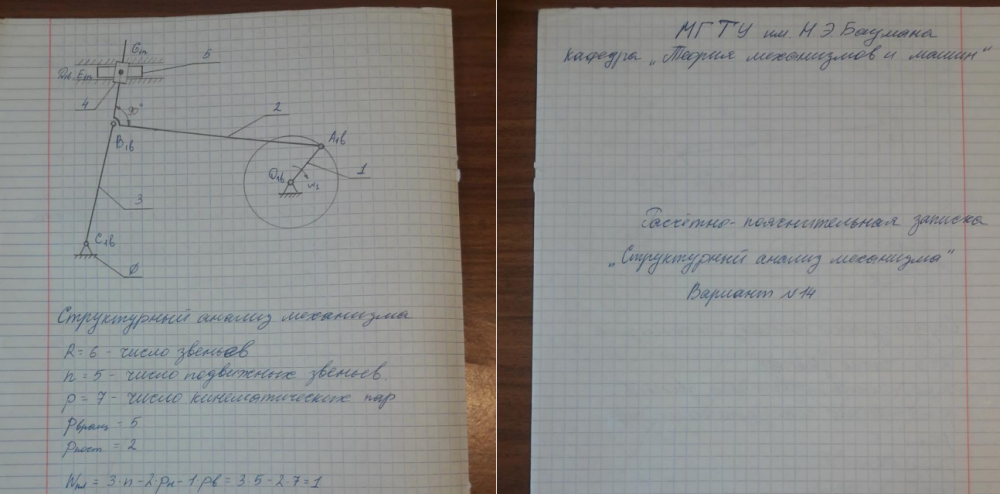 Gп
5
Dв, Eп
4
90°
2
B1в
A1в
1
O1в
ω1
3
C1в
0
Структурный анализ механизма
R = 6 - число звеньев
n = 5 - число подвижных звеньев.
p = 7 - число кинематических пар
pвращ = 5
pпост = 2
Wпл = 3·n-2·pн-1·pв = 3·5-2·7=1
МГТУ им. Н.Э Баумана
Кафедра „Теория механизмов и машин"
Рассчётно-пояснительная записка
„Структурный анализ механизма"
Вариант №14